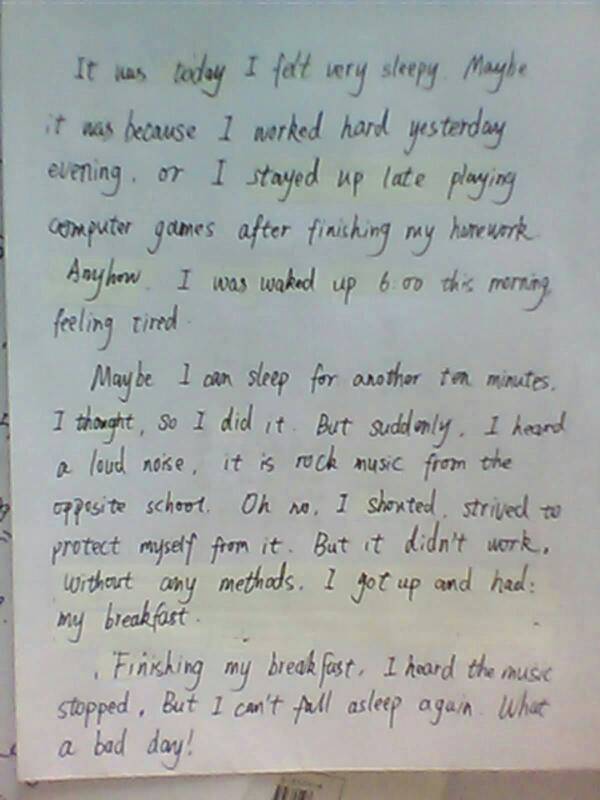 It was today I felt very sleepy. Maybe
it was because I worked hard yesterday
evening, or I stayed up late playing
computer games after finishing my homework.
Anyhow, I was waked up 6:00 this morning,
feeling tired.
Maybe I can sleep for another ten minutes,
I thought, so I did it. But suddenly, I heard
a loud noise, it is rock music from the
opposite school. Oh no, I shouted, strived to
protect myself from it. But it didn't work,
without any methods, I got up and had:
my breakfast.
Finishing my breakfast, I heard the music
stopped, But I can't fall asleep again. What
a bad day!